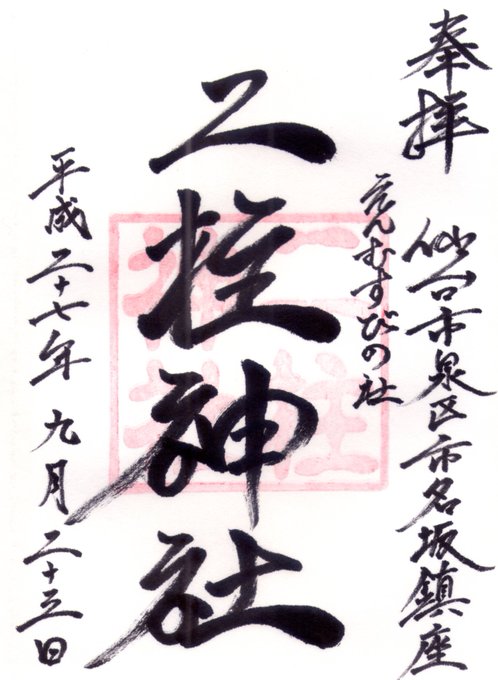 奉拝
仙台市泉区市名坂鎮座
えんむすびの社
二柱神社
二柱神社
平成二十七年九月二十三日